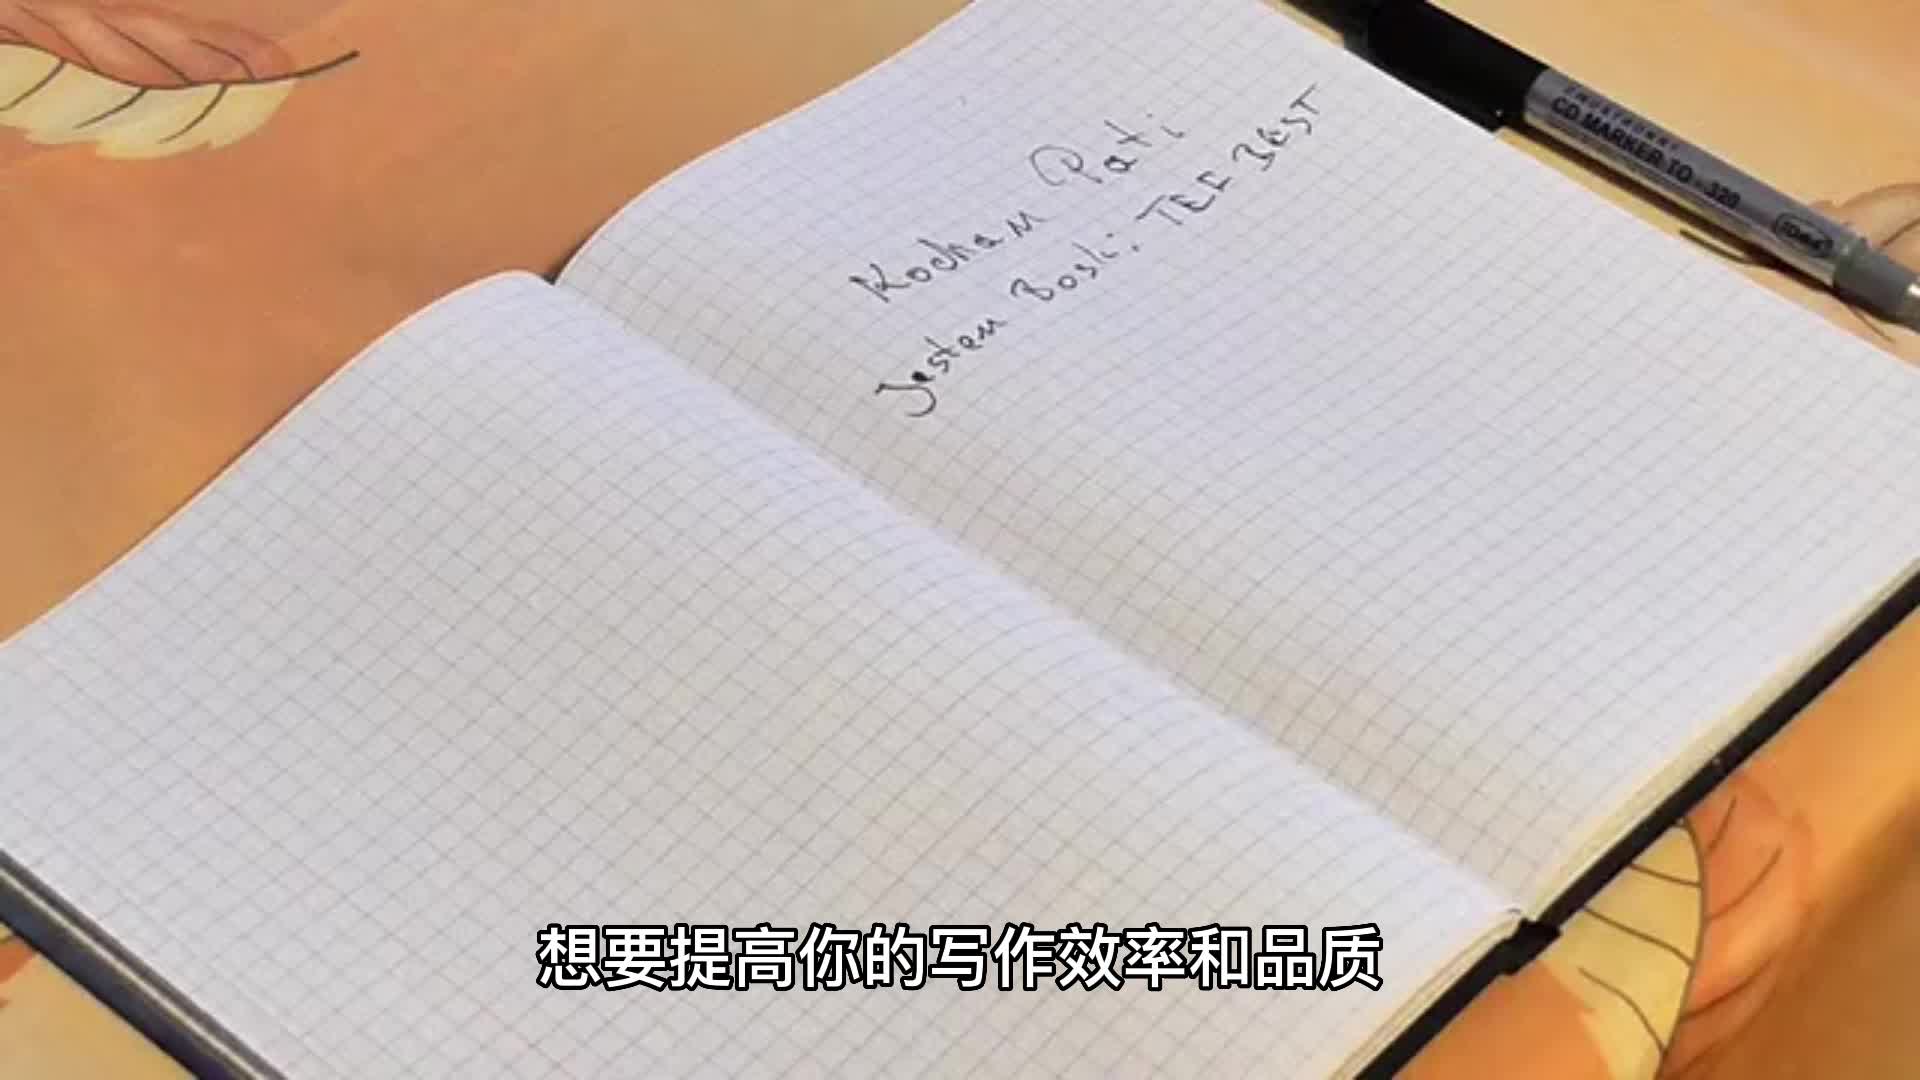 Kocham Pati
Jestem Boski. TEF BEST
CD MARKER TO-320
想要提高你的写作效率和品质